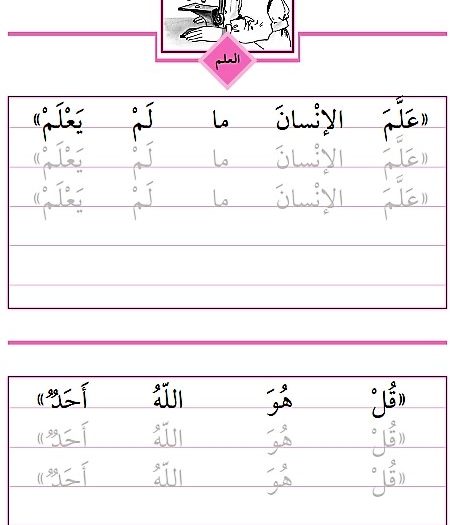 العلم
«عَلَّمَ الإنْسانَ ما لَمْ يَعْلَمْ»
«عَلَّمَ الإنْسانَ ما لَمْ يَعْلَمْ»
«عَلَّمَ الإنْسانَ ما لَمْ يَعْلَمْ»
«قُلْ هُوَ اللّهُ أَحَدٌ»
«قُلْ هُوَ اللّهُ أَحَدٌ»
«قُلْ هُوَ اللّهُ أَحَدٌ»